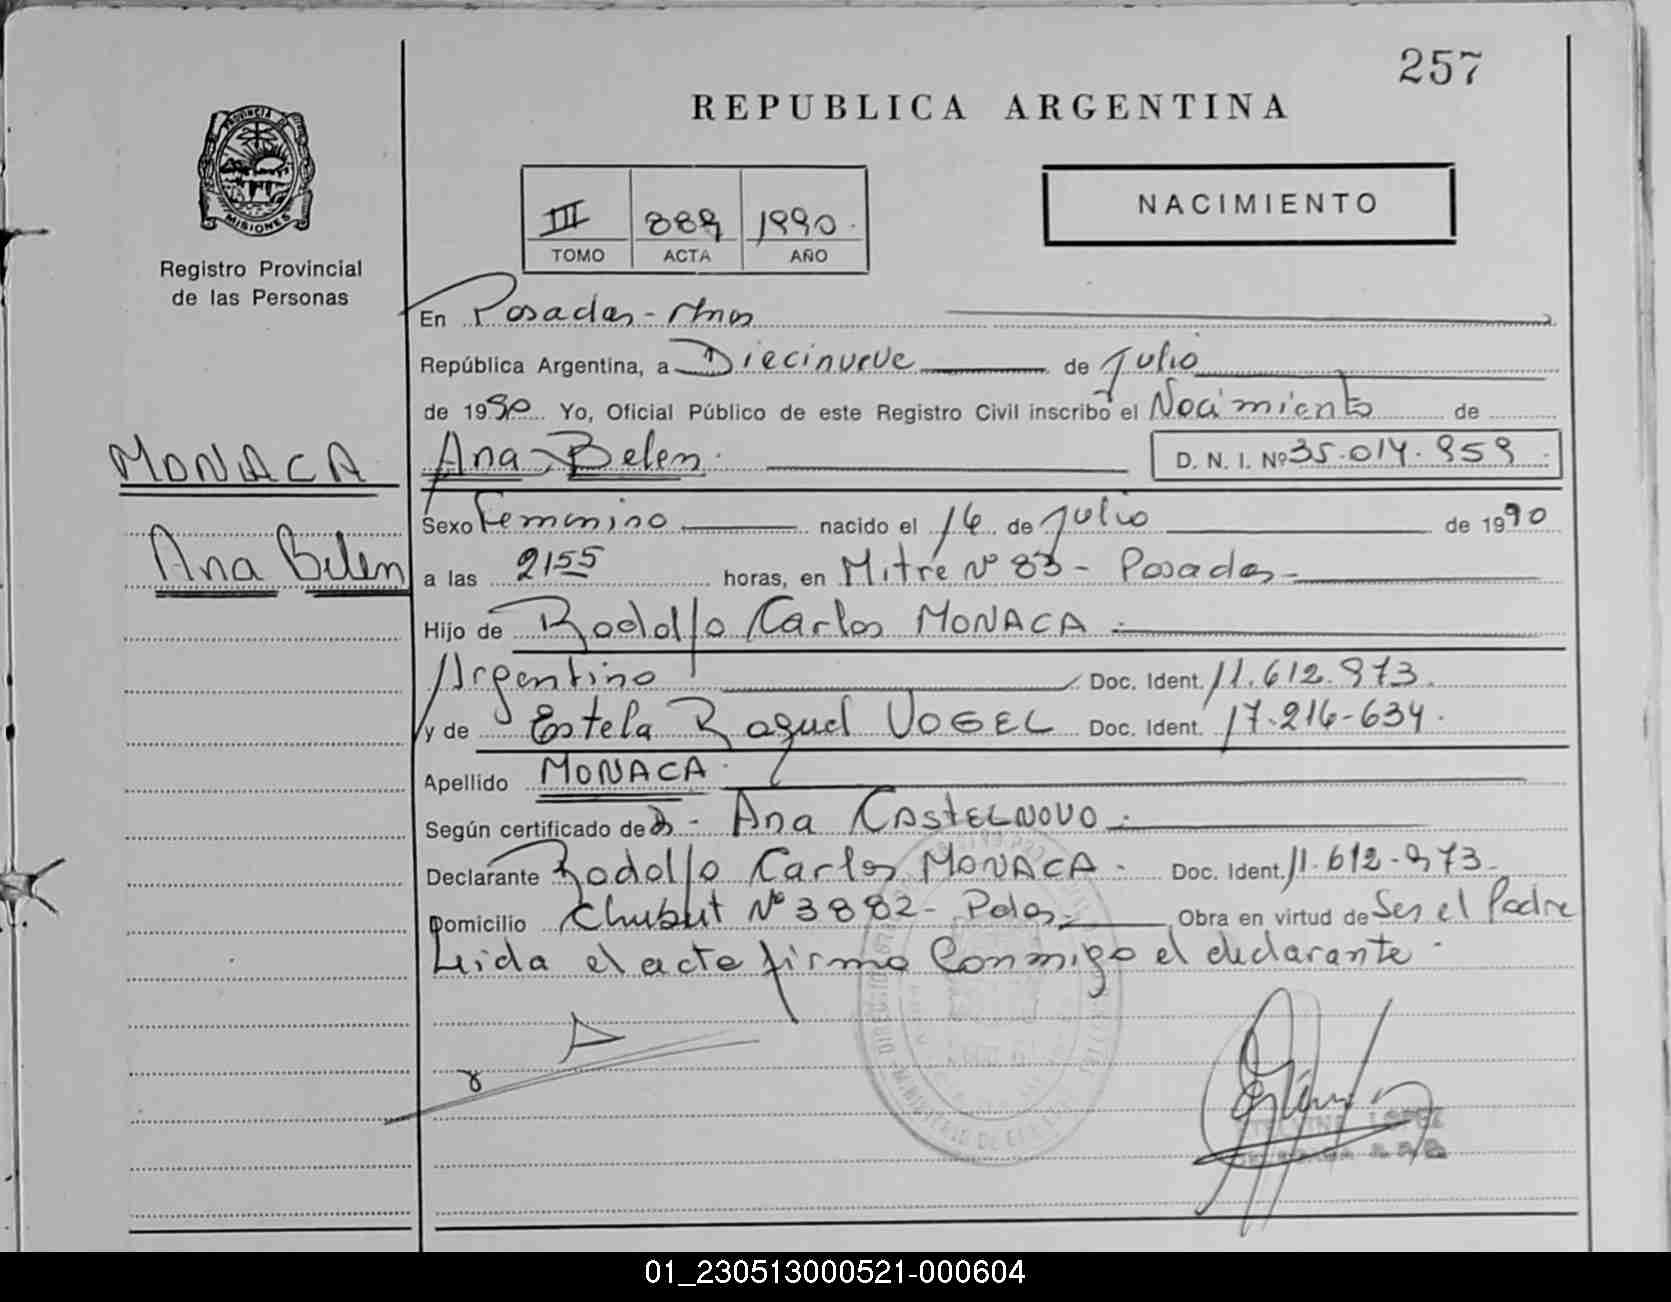 257
REPUBLICA ARGENTINA
PROVINCIA DE
MISIONES
Registro Provincial
de las Personas
III 889 1990.
TOMO ACTA AÑO
NACIMIENTO
En Posadas - Mnes
República Argentina, a Diecinueve de Julio
de 1990 Yo, Oficial Público de este Registro Civil inscribo el Nacimiento de
MONACA
Ana Belen. D. N. I. Nº 35.014.959.
Sexo Femenino nacido el 16 de Julio de 1990
Ana Belen
a las 2155 horas, en Mitre Nº 83 - Posadas -
Hijo de Rodolfo Carlos MONACA.
Argentino Doc. Ident. 11.612.973.
y de Estela Raquel VOGEL Doc. Ident. 17.216-634.
Apellido MONACA.
Según certificado de - Ana CASTELNOVO.
Declarante Rodolfo Carlos MONACA. Doc. Ident. 11.612-973.
Domicilio Chubut Nº 3882 - Pdas. Obra en virtud de Ser el Padre
Leida el acta firma conmigo el declarante.
MINISTERIO DE
LOPEZ
01_230513000521-000604